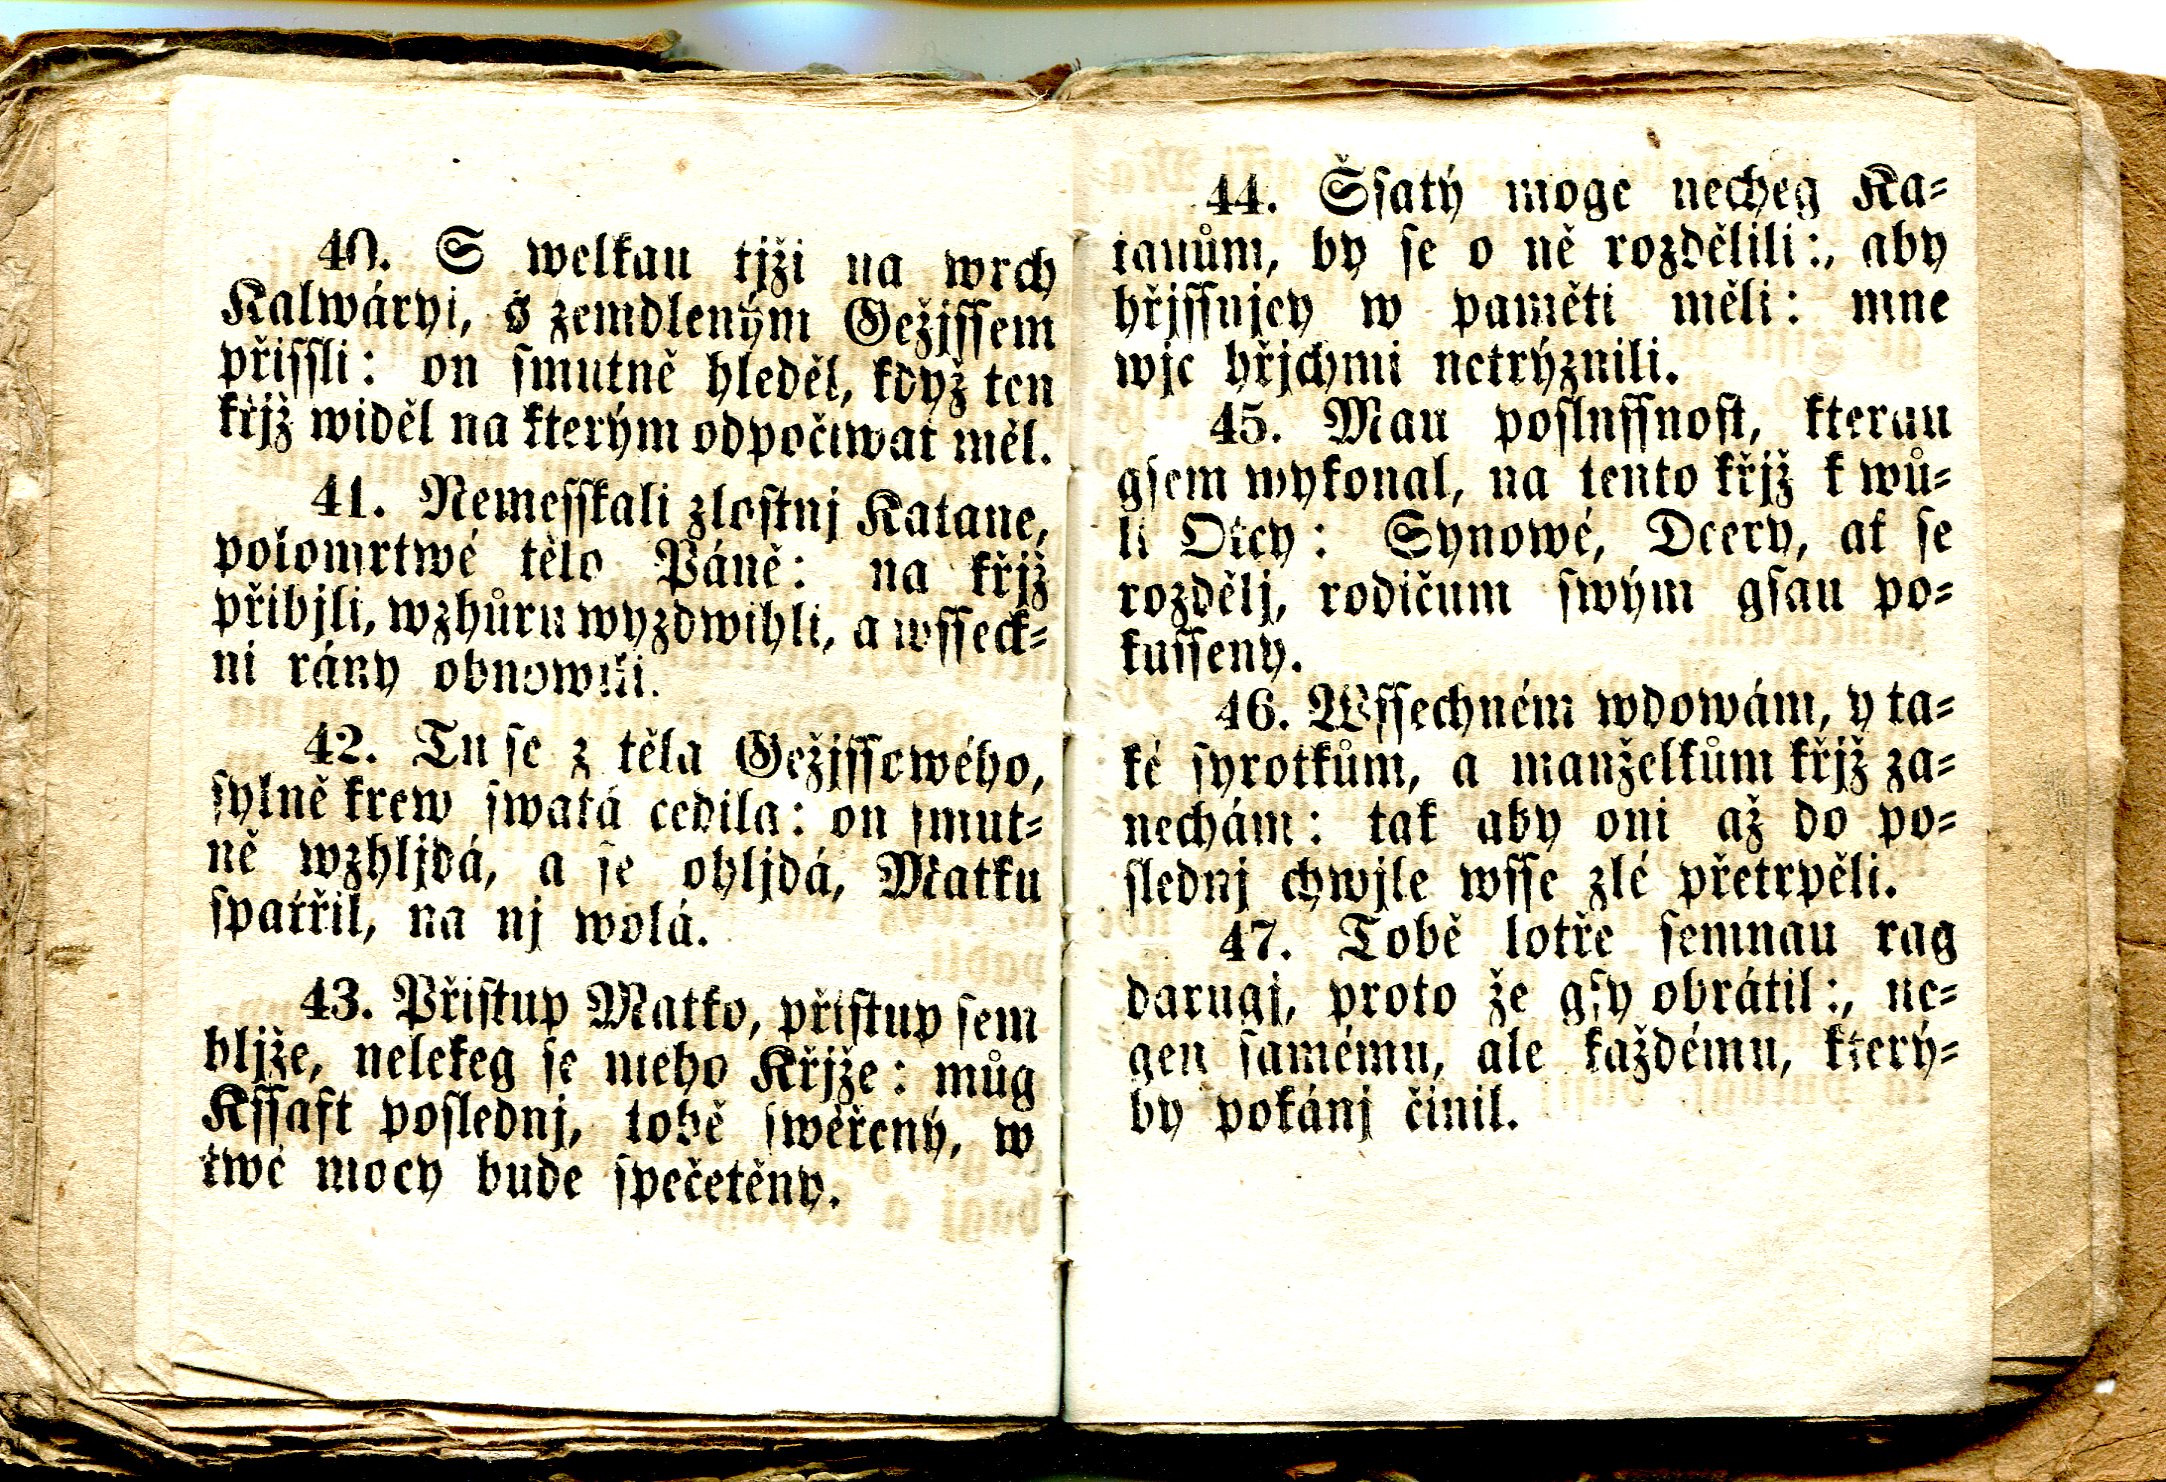 40. S welkau tjži na wrch
Kalwáryi, s zemdleným Gežjssem
přissli: on smutně hleděl, když ten
křjž widěl na kterým odpočiwat měl.
41. Nemesskali zlostnj Katane,
polomrtwé tělo Páně: na křjž
přibjli, wzhůru wyzdwihli, a wsseck=
ni rány obnowili.
42. Tu se z těla Gežjssowého,
sylně krew swatá cedila: on smut=
ně wzhljdá, a se ohljdá, Matku
spatřil, na nj wolá.
43. Přistup Matko, přistup sem
bljže, nelekeg se meho Křjže: můg
Kssaft poslednj, tobě swěřený, w
twé mocy bude spečetěny.
44. Šsatý moge necheg Ka=
tanům, by se o ně rozdělili:, aby
hřjssnjcy w paměti měli: mne
wjc hřjchmi netrýznili.
45. Mau poslussnost, kterau
gsem wykonal, na tento křjž k wů=
li Otcy: Synowé, Dcery, ať se
rozdělj, rodičum swým gsau po=
kusseny.
46. Wssechném wdowám, y ta=
ké syrotkům, a manželkům křjž za=
nechám: tak aby oni až do po=
slednj chwjle wsse zlé přetrpěli.
47. Tobě lotře semnau rag
darugj, proto že gsy obrátil:, ne=
gen samému, ale každému, který=
by pokánj činil.